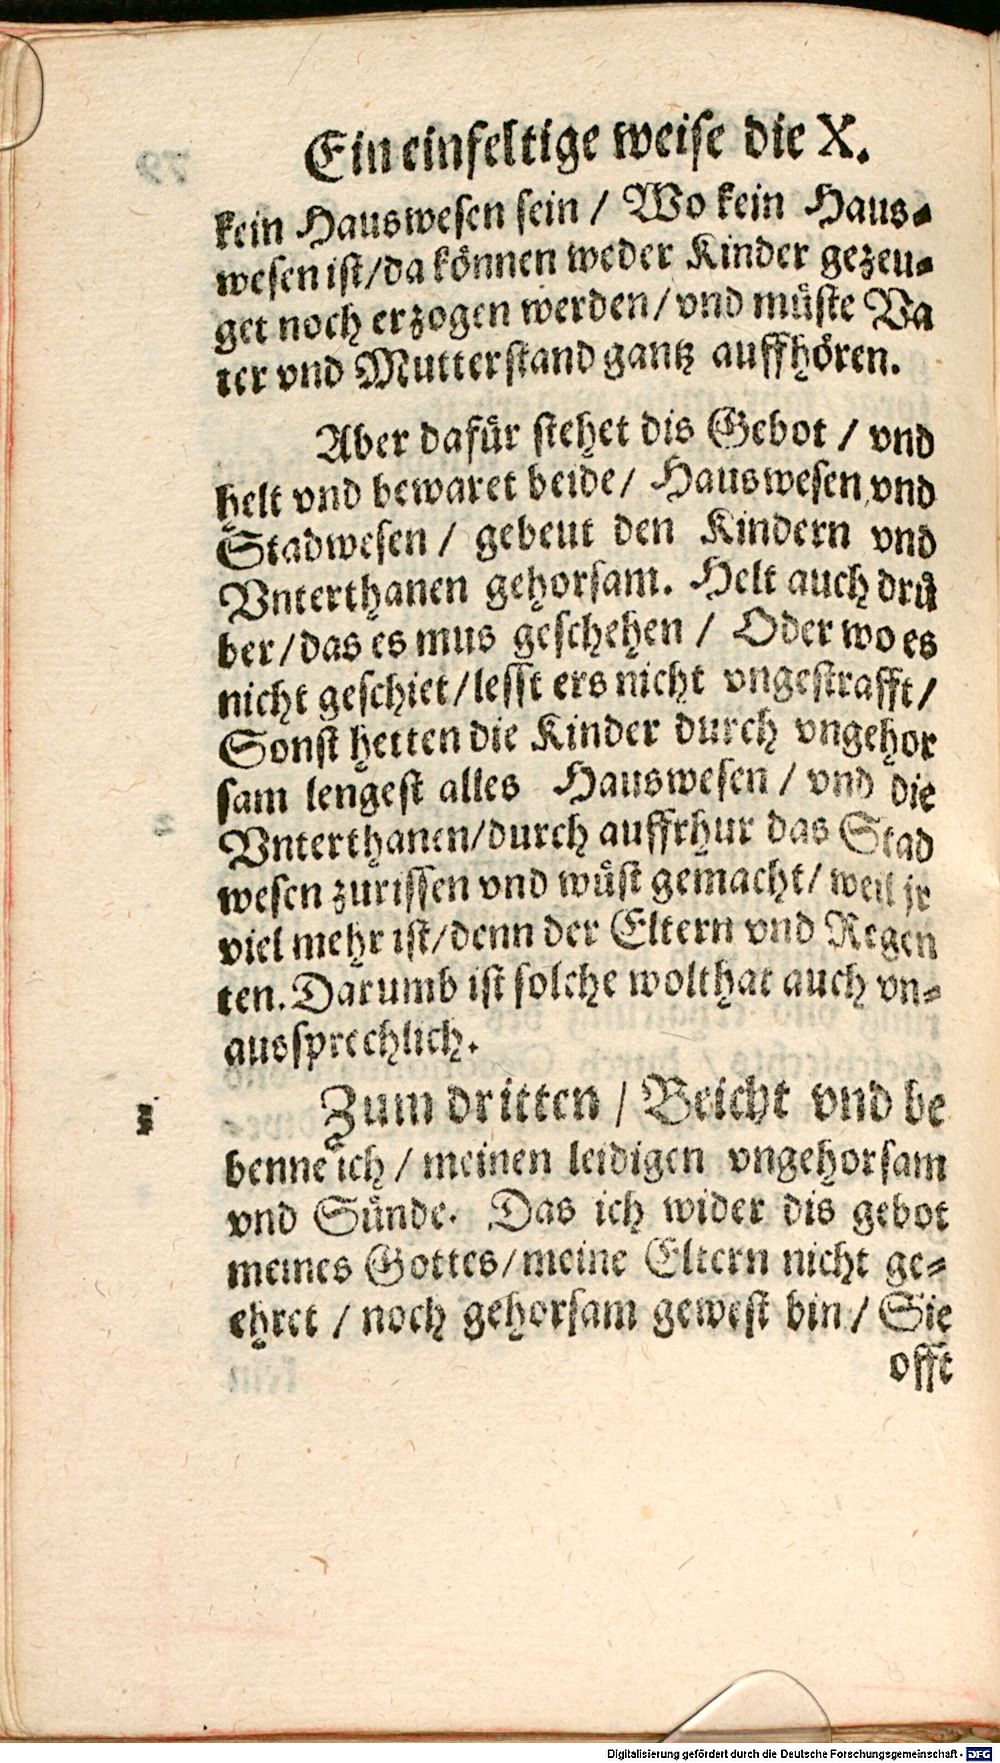 Ein einfeltige weise die X.
kein Hauswesen sein / Wo kein Haus⸗
wesen ist/da können weder Kinder gezeu⸗
get noch erzogen werden/vnd müste Va
ter vnd Mutterstand gantz auffhören.
Aber dafür stehet dis Gebot / vnd
helt vnd bewaret beide/ Hauswesen vnd
Stadwesen / gebeut den Kindern vnd
Vnterthanen gehorsam. Helt auch drü
ber/das es mus geschehen / Oder wo es
nicht geschiet/lesst ers nicht vngestrafft/
Sonst hetten die Kinder durch vngehor
sam lengest alles Hauswesen / vnd die
Vnterthanen/durch auffrhur das Stad
wesen zurissen vnd wüst gemacht/ weil jr
viel mehr ist/denn der Eltern vnd Regen
ten. Darumb ist solche wolthat auch vn⸗
aussprechlich.
Zum dritten / Beicht vnd be
benne ich / meinen leidigen vngehorsam
vnd Sünde. Das ich wider dis gebot
meines Gottes/meine Eltern nicht ge⸗
ehret / noch gehorsam gewest bin / Sie
offt
Digitalisierung gefördert durch die Deutsche Forschungsgemeinschaft - DFG